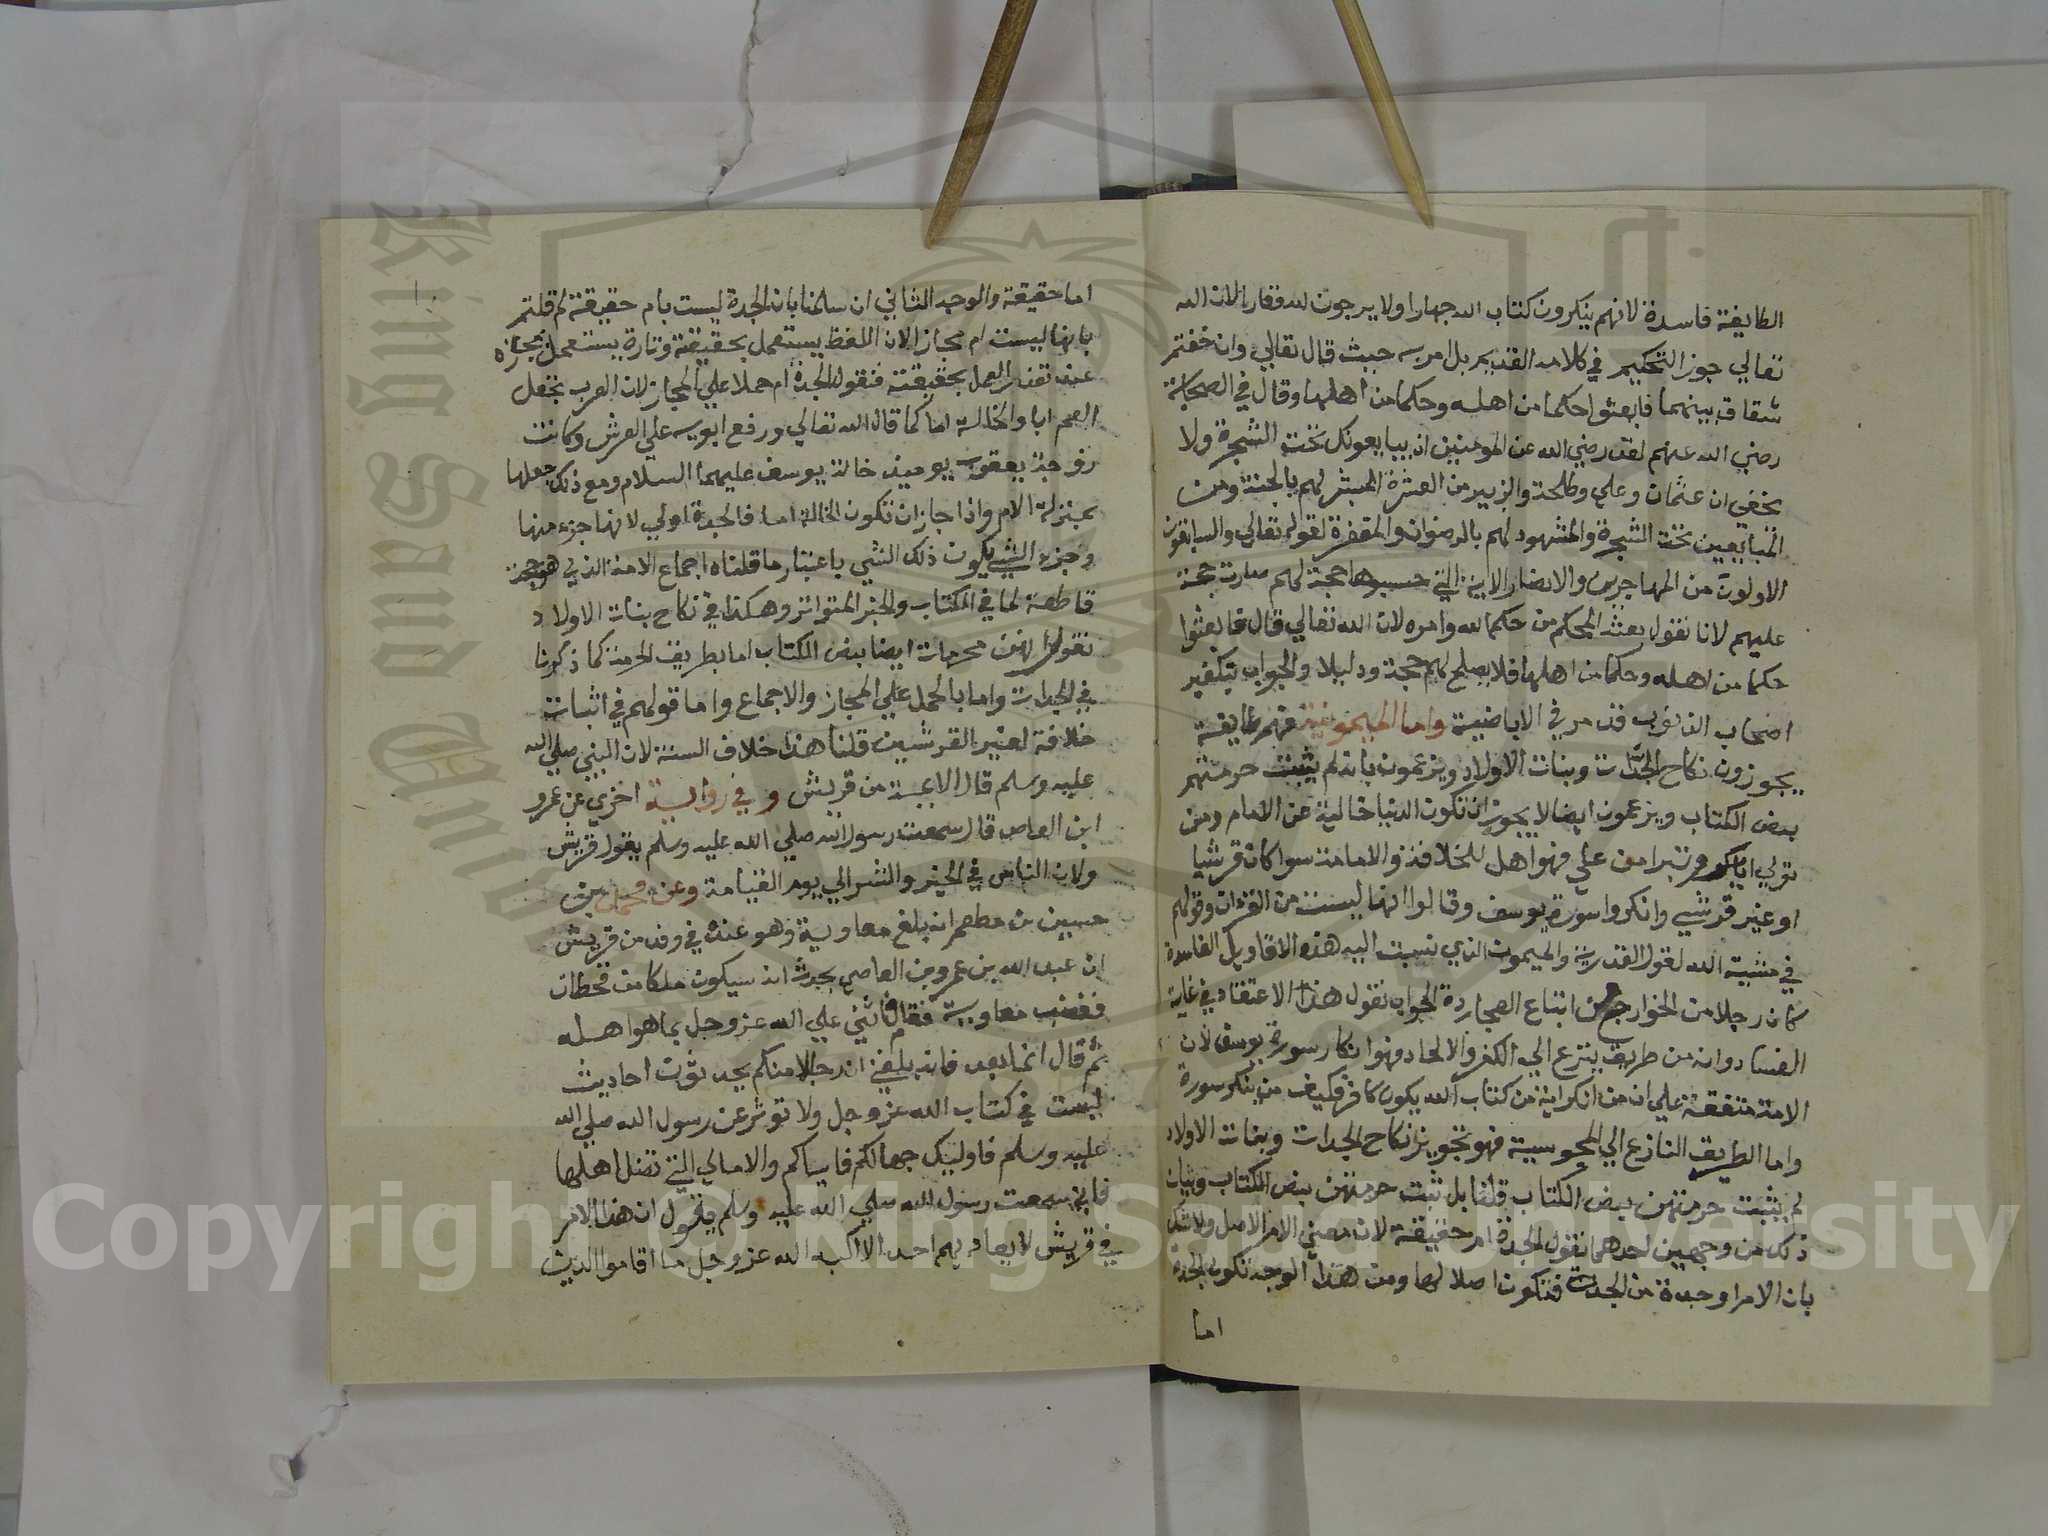 الطايفة فاسدة لانهم ينكرون كتاب الله جهارا ولا يرجون لله وقارا لان الله
تعالي جوز التحكيم في كلامه القديم بل امر به حيث قال تعالي وان خفتم
شقاق بينهما فابعثوا حكما من اهله وحكما من اهلها وقال في الصحابة
رضي الله عنهم لقد رضي الله عن المومنين اذ يبايعونك تحت الشجرة ولا
يخفي ان عثمان وعلي وطلحة والزبير من العشرة المبشر لهم بالجنة ومن
المبايعين تحت الشجرة والمشهود لهم بالرضوان والمغفرة لقوله تعالي والسابقون
الاولون من المهاجرين والانصار الاية التي حسبوها حجة لهم صارت حجة
عليهم لانا نقول بعث المحكم من حكم الله وامره لان الله تعالي قال فابعثوا
حكما من اهله وحكما من اهلها فلا يصلح لهم حجة ودليلا والجواب بتكفير
اصحاب الذنوب قد مر في الاباضية واما الميمونية فهم طايفة
يجوزون نكاح الجدات وبنات الاولاد ويزعمون بانه لم يثبت حرمتهم
بنص الكتاب ويزعمون ايضا لا يجوز ان تكون الدنيا خالية عن الامام ومن
تولي ابابكر وتبرا من علي فهو اهل للخلافة والامامة سوا كان قرشيا
او غير قرشي وانكروا سورة يوسف وقالوا انها ليست من القران وقولهم
في مشية الله لقول القدرية والميمون الذي نسبت اليه هذه الاقاويل الفاسدة
كان رجلا من الخوارج من اتباع العجاردة الجواب نقول هذا الاعتقاد في غاية
الفساد وانه من طريق ينزع الي الكفر والالحاد فهو انكار سورة يوسف لان
الامة متفقة علي ان من انكر اية من كتاب الله يكون كافرا فكيف من ينكر سورة
واما الطريق النازع الي المجوسية فهو تجويز نكاح الجدات وبنات الاولاد
لم يثبت حرمتهن بنص الكتاب قلنا بل ثبت حرمتهن بنص الكتاب وبيان
ذلك من وجهين احدهما نقول الجدة ام حقيقة لان معني الام الاصل ولا شك
بان الام اوجدة من الجدات فتكون اصلا لها ومن هذا الوجه تكون الجدة
اما
اما حقيقة والوجه الثاني ان سلمنا بان الجدة ليست بام حقيقة لم قلتم
بانها ليست ام مجازا لان اللفظ يستعمل بحقيقته وتارة يستعمل بمجازه
عند تعذر العمل بحقيقته فنقول الجدة ام حملا علي المجاز لان العرب تجعل
العم ابا والخالة اما كما قال الله تعالي ورفع ابويه علي العرش وكانت
زوجة يعقوب يوميذ خالة يوسف عليهما السلام ومع ذلك جعلها
بمنزلة الام واذا جاز ان تكون الخالة اما فالجدة اولي لانها جزء منها
وجزء الشي يكون ذلك الشي باعتبار ما قلناه اجماع الامة الذي هو حجة
قاطعة لما في الكتاب والخبر المتواتر وهكذا في نكاح بنات الاولاد
نقول انهن محرمات ايضا بنص الكتاب اما بطريق الحرمة كما ذكرنا
في الجدات واما بالحمل علي المجاز والاجماع واما قولهم في اثبات
خلافة لغير القرشيين قلنا هذا خلاف السنة لان النبي صلي الله
عليه وسلم قال الايمة من قريش وفي رواية اخري عن عمرو
ابن العاص قال سمعت رسول الله صلي الله عليه وسلم يقول قريش
ولاة الناس في الخير والشر الي يوم القيامة وعن محمد بن
جبير بن مطعم انه بلغ معاوية وهو عنده في وفد من قريش
ان عبد الله بن عمرو بن العاصي يحدث انه سيكون ملكا من قحطان
فغضب معاوية فقام فاثني علي الله عز وجل بما هو اهله
ثم قال اما بعد فانه بلغني ان رجالا منكم يحدثون احاديث
ليست في كتاب الله عز وجل ولا توثر عن رسول الله صلي الله
عليه وسلم فاوليك جهالكم فاياكم والاماني التي تضل اهلها
فاني سمعت رسول الله صلي الله عليه وسلم يقول ان هذا الامر
في قريش لا يعاديهم احد الا اكبه الله عز وجل ما اقاموا الدين
King Saud University
Copyright © King Saud University